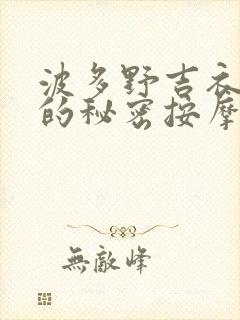 波多野吉衣
的秘密按摩
無敵峰